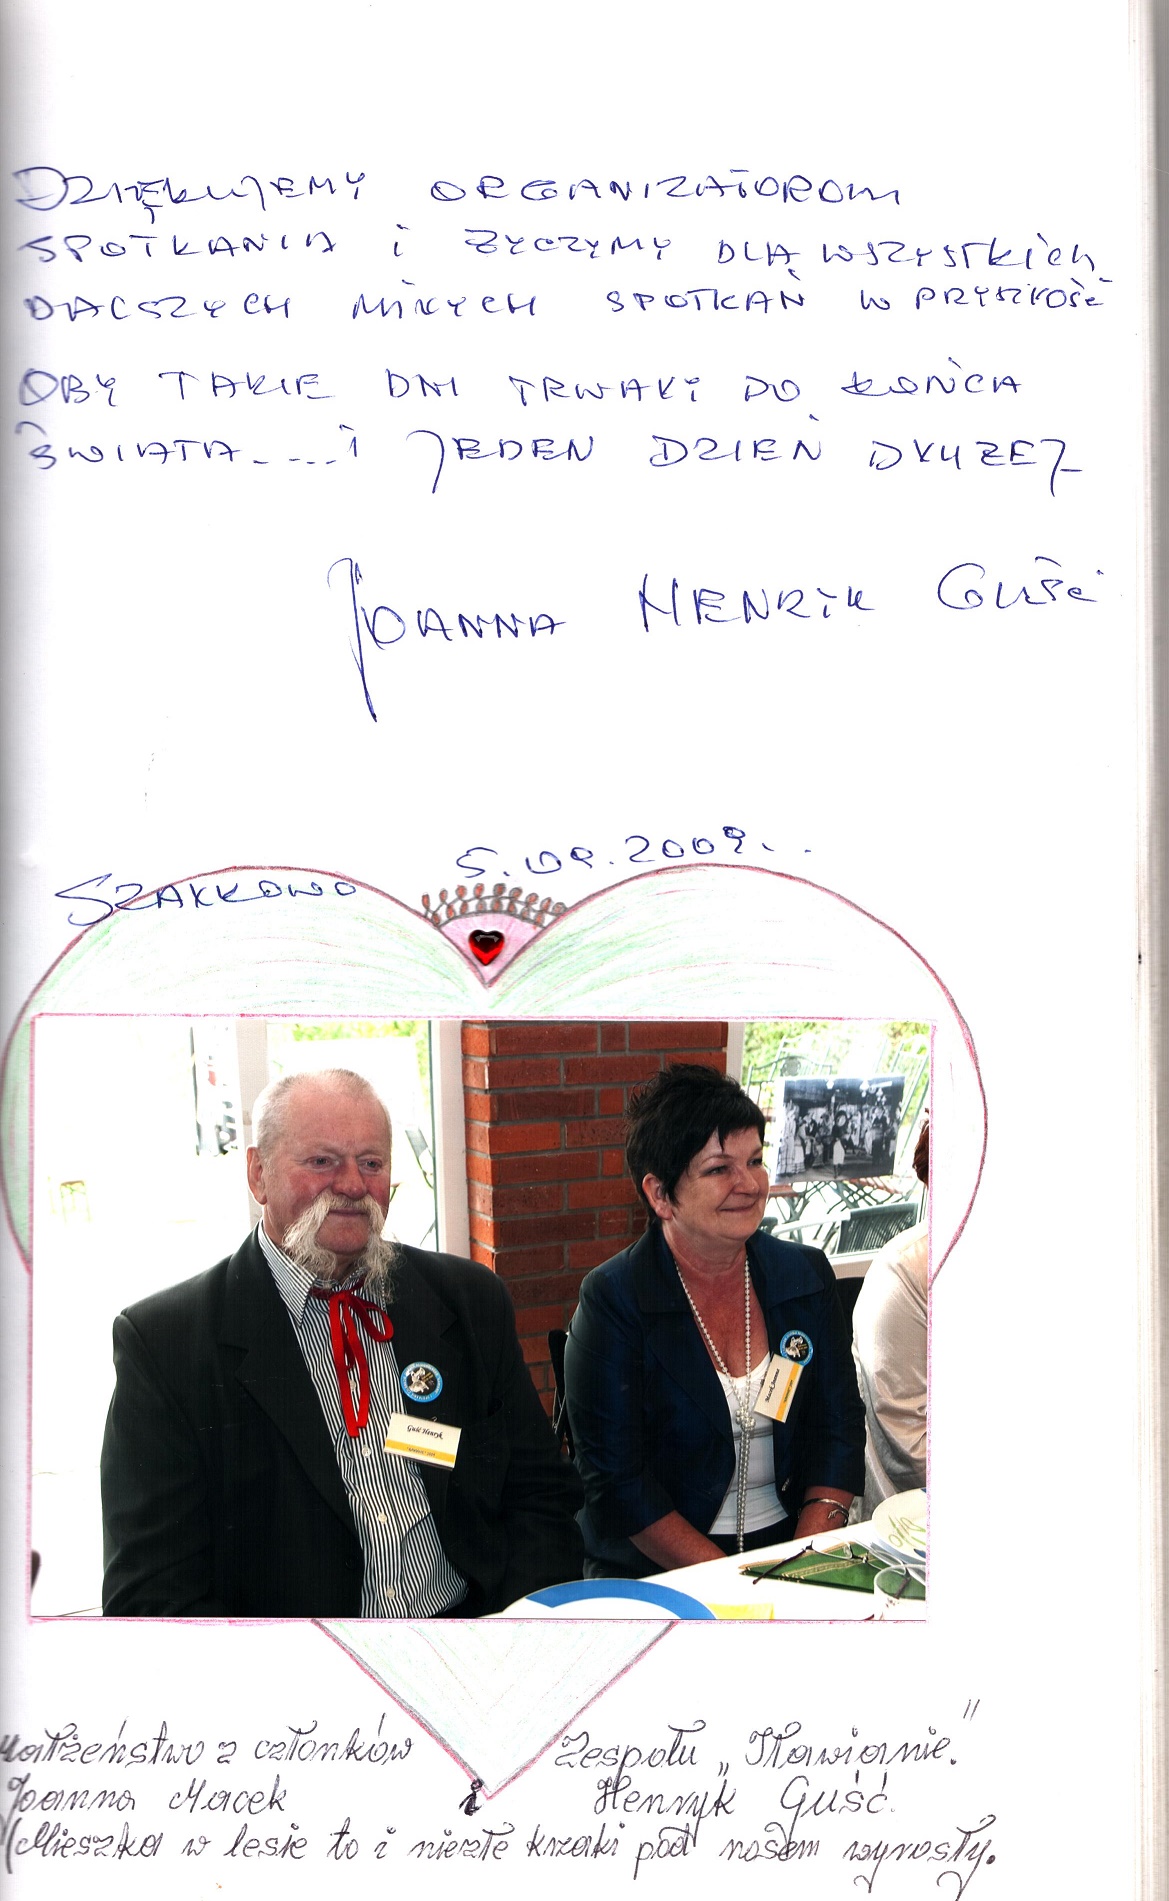 DZIĘKUJEMY ORGANIZATOROM
SPOTKANIA i ŻYCZYMY DLA WSZYSTKICH
DALSZYCH MIŁYCH SPOTKAŃ W PRYSZŁOŚĆ
OBY TAKIE DNI TRWAŁY DO KOŃCA
ŚWIATA....i JEDEN DZIEŃ DŁUŻEJ
JOANNA HENRYK GUŚĆ
5.09.2009..
SZAŁKOWO
Guść Henryk
Macek Joanna
Małżeństwo z członków Zespołu „Iławianie."
Joanna Macek i Henryk Guść.
(Mieszka w lesie to i niezłe krzaki pod nosem wyrosły.